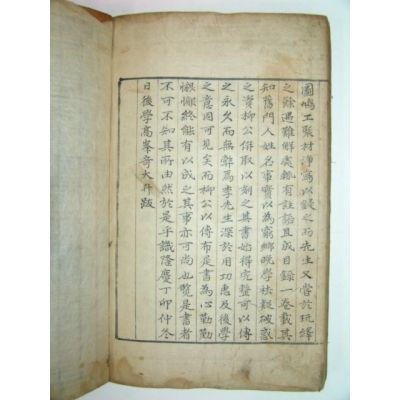 圖鳩工聚材淨寫以鋟之而先生又嘗於玩繹
之餘遇難解處輒有註語且成目錄一卷載其
知舊門人姓名事實以為窮鄉晚學袪疑破惑
之資柳公併取以刻之其書始得完整可以傳
之永久而無弊焉李先生深於用功惠及後學
之意固可見矣而柳公以傳布是書為心勤勤
懇懇終能有以成之其事亦可尚也覽是書者
不可不知其所由然於是乎識隆慶丁卯仲冬
日後學高峯奇大升跋